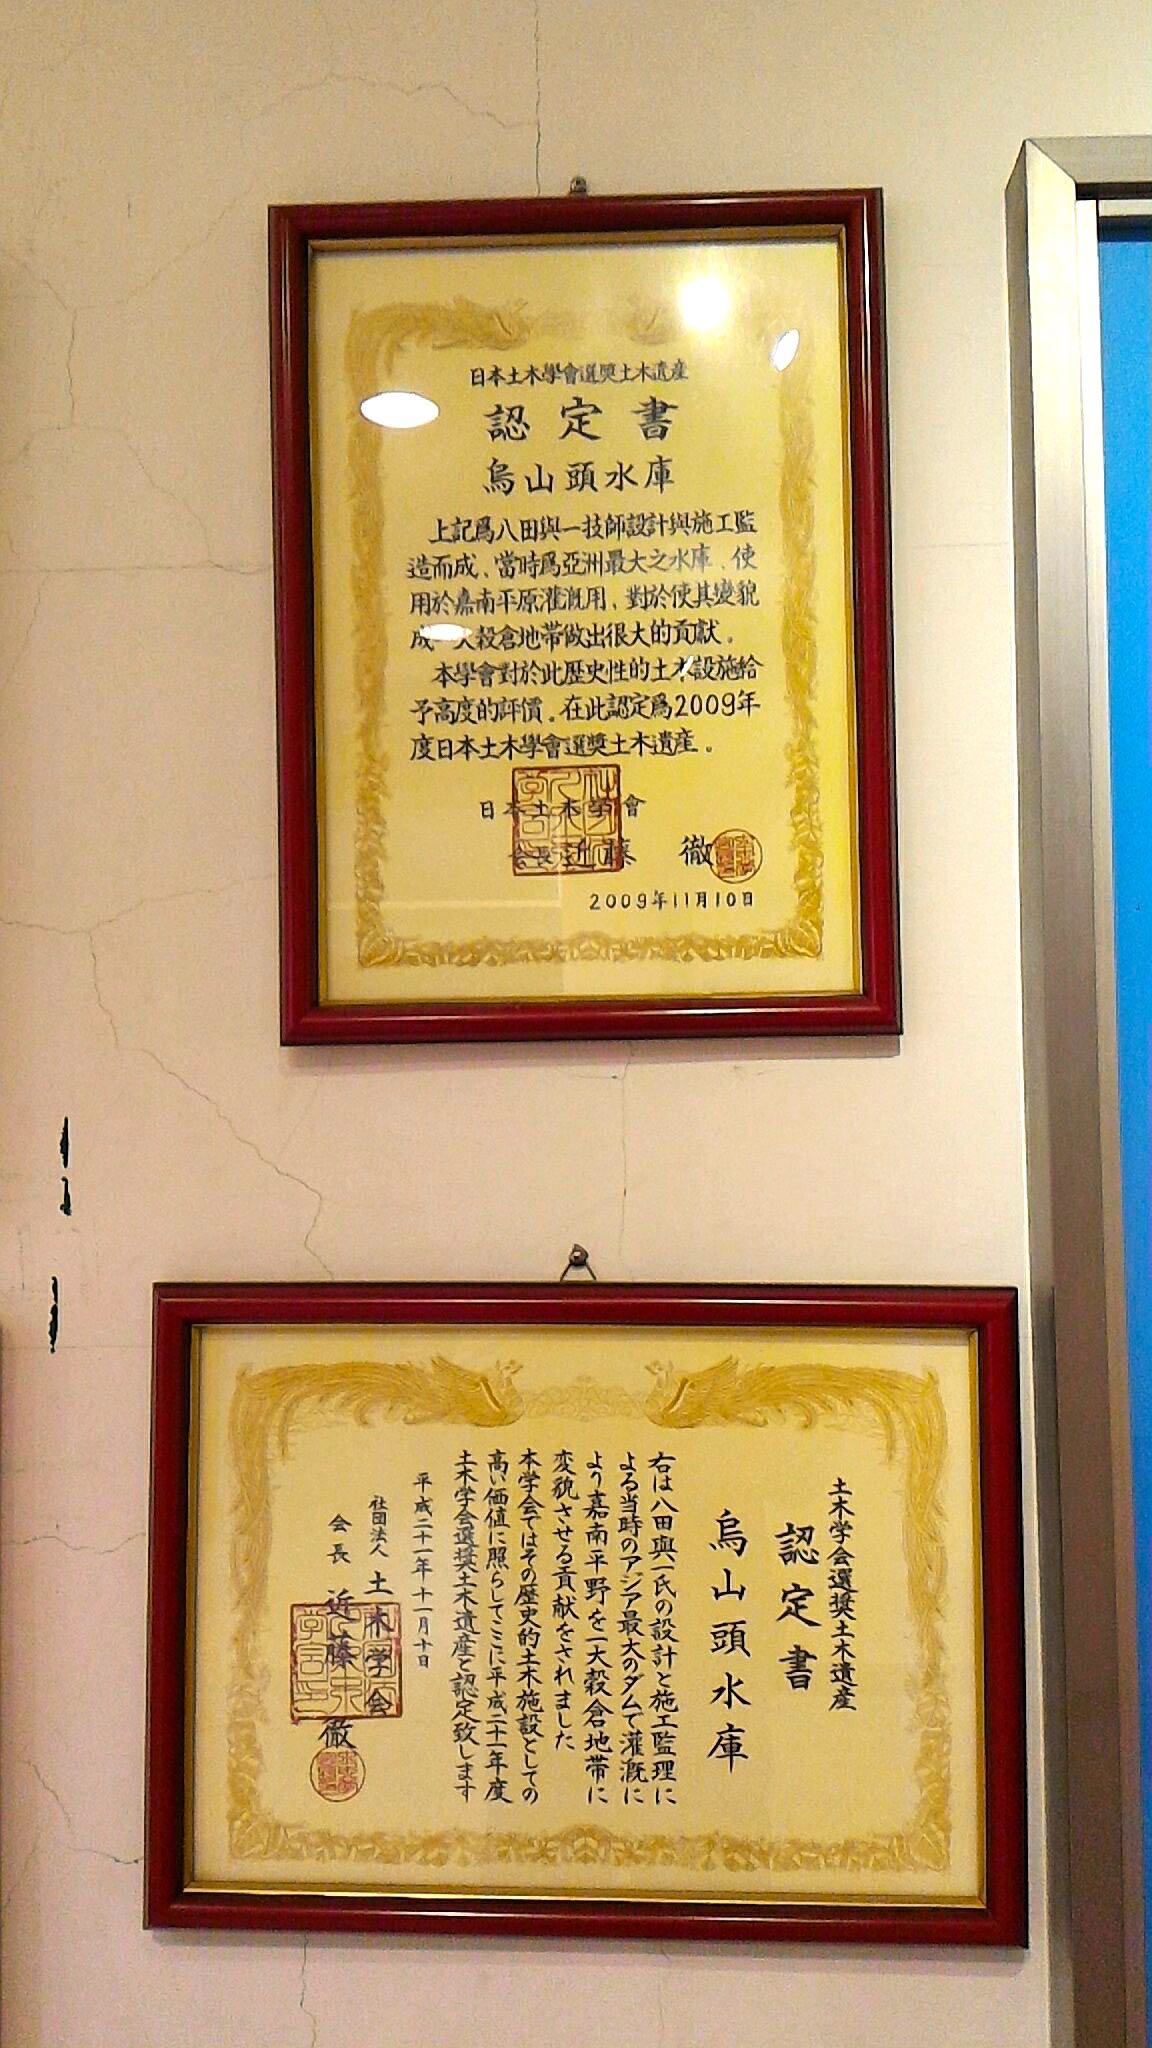 日本土木學會選獎土木遺産
認定書
烏山頭水庫
上記爲八田與一技師設計與施工監
造而成、當時爲亞洲最大之水庫、使
用於嘉南平原灌漑用、對於使其變貌
成一大穀倉地帶做出很大的貢獻。
本學會對於此歷史性的土木設施給
予高度的評價。在此認定爲2009年
度日本土木學會選獎土木遺産。
日本土木學會
会長 近藤 徹
2009年11月10日
土木学会選奨土木遺産
認定書
烏山頭水庫
右は八田與一氏の設計と施工監理に
よる当時のアジア最大のダムで灌漑に
より嘉南平野を一大穀倉地帯に
変貌させる貢献をされました
本学会ではその歴史的土木施設としての
高い価値に照らしてここに平成二十一年度
土木学会選奨土木遺産と認定致します
平成二十一年十一月十日
社団法人 土木学会
会長 近藤 徹